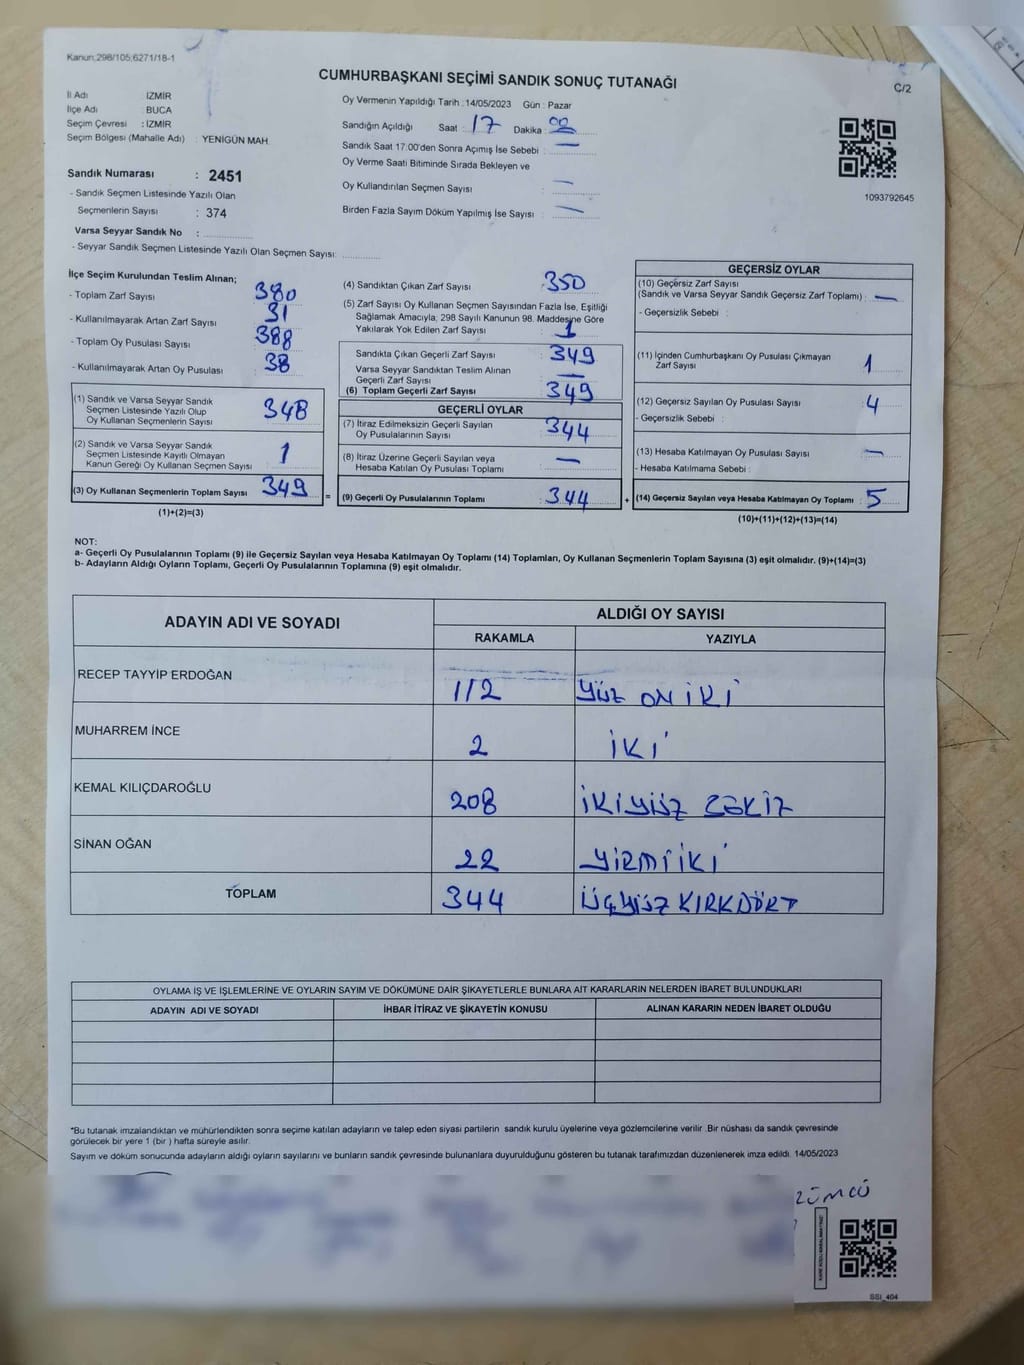 Kanun:298/105;6271/18-1
CUMHURBAŞKANI SEÇİMİ SANDIK SONUÇ TUTANAĞI
C/2
İl Adı İZMİR
İlçe Adı BUCA
Seçim Çevresi : İZMİR
Seçim Bölgesi (Mahalle Adı) : YENİGÜN MAH.
Sandık Numarası : 2451
- Sandık Seçmen Listesinde Yazılı Olan
Seçmenlerin Sayısı : 374
Varsa Seyyar Sandık No :
- Seyyar Sandık Seçmen Listesinde Yazılı Olan Seçmen Sayısı:
Oy Vermenin Yapıldığı Tarih : 14/05/2023 Gün : Pazar
Sandığın Açıldığı Saat : 17 Dakika : 00
Sandık Saat 17:00'den Sonra Açımış İse Sebebi : —
Oy Verme Saati Bitiminde Sırada Bekleyen ve
Oy Kullandırılan Seçmen Sayısı : —
Birden Fazla Sayım Döküm Yapılmış İse Sayısı : —
1093792645
İlçe Seçim Kurulundan Teslim Alınan;
- Toplam Zarf Sayısı : 380
- Kullanılmayarak Artan Zarf Sayısı : 31
- Toplam Oy Pusulası Sayısı : 388
- Kullanılmayarak Artan Oy Pusulası : 38
(1) Sandık ve Varsa Seyyar Sandık
Seçmen Listesinde Yazılı Olup
Oy Kullanan Seçmenlerin Sayısı : 348
(2) Sandık ve Varsa Seyyar Sandık
Seçmen Listesinde Kayıtlı Olmayan
Kanun Gereği Oy Kullanan Seçmen Sayısı : 1
(3) Oy Kullanan Seçmenlerin Toplam Sayısı : 349
(1)+(2)=(3)
(4) Sandıktan Çıkan Zarf Sayısı : 350
(5) Zarf Sayısı Oy Kullanan Seçmen Sayısından Fazla İse, Eşitliği
Sağlamak Amacıyla; 298 Sayılı Kanunun 98. Maddesine Göre
Yakılarak Yok Edilen Zarf Sayısı : 1
Sandıkta Çıkan Geçerli Zarf Sayısı : 349
Varsa Seyyar Sandıktan Teslim Alınan
Geçerli Zarf Sayısı : —
(6) Toplam Geçerli Zarf Sayısı : 349
GEÇERLİ OYLAR
(7) İtiraz Edilmeksizin Geçerli Sayılan
Oy Pusulalarının Sayısı : 344
(8) İtiraz Üzerine Geçerli Sayılan veya
Hesaba Katılan Oy Pusulası Toplamı : —
= (9) Geçerli Oy Pusulalarının Toplamı : 344
GEÇERSİZ OYLAR
(10) Geçersiz Zarf Sayısı
(Sandık ve Varsa Seyyar Sandık Geçersiz Zarf Toplamı) : —
- Geçersizlik Sebebi :
(11) İçinden Cumhurbaşkanı Oy Pusulası Çıkmayan
Zarf Sayısı : 1
(12) Geçersiz Sayılan Oy Pusulası Sayısı : 4
- Geçersizlik Sebebi :
(13) Hesaba Katılmayan Oy Pusulası Sayısı : —
- Hesaba Katılmama Sebebi :
+ (14) Geçersiz Sayılan veya Hesaba Katılmayan Oy Toplamı : 5
(10)+(11)+(12)+(13)=(14)
NOT:
a- Geçerli Oy Pusulalarının Toplamı (9) ile Geçersiz Sayılan veya Hesaba Katılmayan Oy Toplamı (14) Toplamları, Oy Kullanan Seçmenlerin Toplam Sayısına (3) eşit olmalıdır. (9)+(14)=(3)
b- Adayların Aldığı Oyların Toplamı, Geçerli Oy Pusulalarının Toplamına (9) eşit olmalıdır.
ADAYIN ADI VE SOYADI ALDIĞI OY SAYISI
RAKAMLA YAZIYLA
RECEP TAYYİP ERDOĞAN 112 YÜZ ON İKİ
MUHARREM İNCE 2 İKİ
KEMAL KILIÇDAROĞLU 208 İKİYÜZ SEKİZ
SİNAN OĞAN 22 YİRMİ İKİ
TOPLAM 344 ÜÇYÜZ KIRKDÖRT
OYLAMA İŞ VE İŞLEMLERİNE VE OYLARIN SAYIM VE DÖKÜMÜNE DAİR ŞİKAYETLERLE BUNLARA AİT KARARLARIN NELERDEN İBARET BULUNDUKLARI
ADAYIN ADI VE SOYADI İHBAR İTİRAZ VE ŞİKAYETİN KONUSU ALINAN KARARIN NEDEN İBARET OLDUĞU
*Bu tutanak imzalandıktan ve mühürlendikten sonra seçime katılan adayların ve talep eden siyasi partilerin sandık kurulu üyelerine veya gözlemcilerine verilir .Bir nüshası da sandık çevresinde
görülecek bir yere 1 (bir ) hafta süreyle asılır.
Sayım ve döküm sonucunda adayların aldığı oyların sayılarını ve bunların sandık çevresinde bulunanlara duyurulduğunu gösteren bu tutanak tarafımızdan düzenlenerek imza edildi. 14/05/2023
ZÜMCÜ
SSI_404